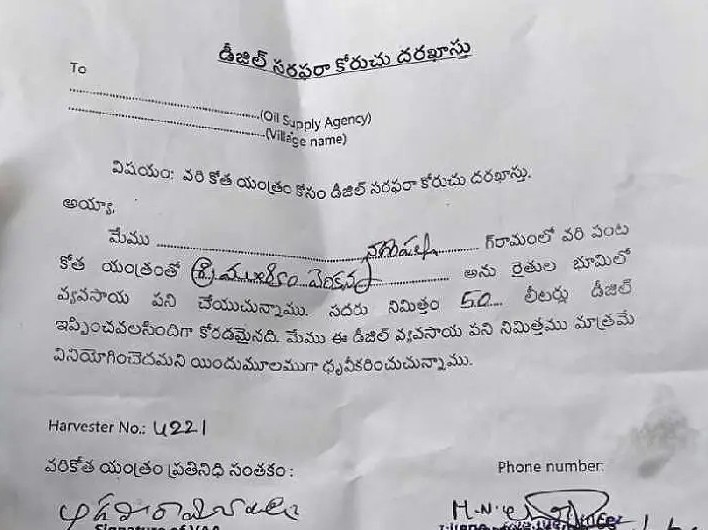 డీజిల్ సరఫరా కోరుచు దరఖాస్తు
To
(Oil Supply Agency)
(Village name)
విషయం: వరి కోత యంత్రం కోసం డీజిల్ సరఫరా కోరుచు దరఖాస్తు.
అయ్యా,
మేము గ్రామంలో వరి పంట
కోత యంత్రంతో అను రైతుల భూమిలో
వ్యవసాయ పని చేయుచున్నాము. సదరు నిమిత్తం 50 లీటర్లు డీజిల్
ఇప్పించవలసిందిగా కోరడమైనది. మేము ఈ డీజిల్ వ్యవసాయ పని నిమిత్తము మాత్రమే
వినియోగించెదమని యిందుమూలముగా ధృవీకరించుచున్నాము.
Harvester No.: 4221
వరికోత యంత్రం ప్రతినిధి సంతకం :
Phone number: